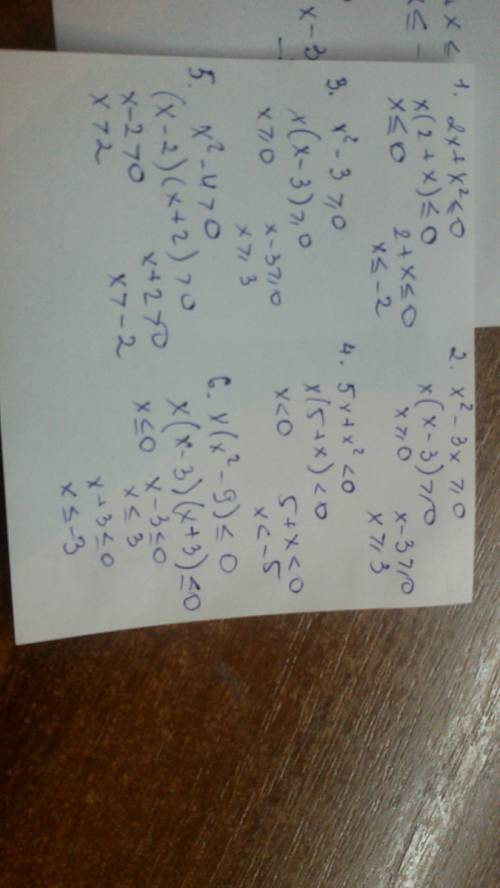 1. 2x+x² ≤ 0
x(2+x) ≤ 0
x ≤ 0 2+x ≤ 0
x ≤ -2
2. x² - 3x ≥ 0
x(x-3) ≥ 0
x ≥ 0 x-3 ≥ 0
x ≥ 3
3. x² - 3 ≥ 0
x(x-3) ≥ 0
x ≥ 0 x-3 ≥ 0
x ≥ 3
4. 5x+x² < 0
x(5+x) < 0
x < 0 5+x < 0
x < -5
5. x² - 4 > 0
(x-2)(x+2) > 0
x-2 > 0 x+2 > 0
x > 2 x > -2
6. x(x² - 9) ≤ 0
x(x-3)(x+3) ≤ 0
x ≤ 0 x-3 ≤ 0
x ≤ 3
x+3 ≤ 0
x ≤ -3
x-3